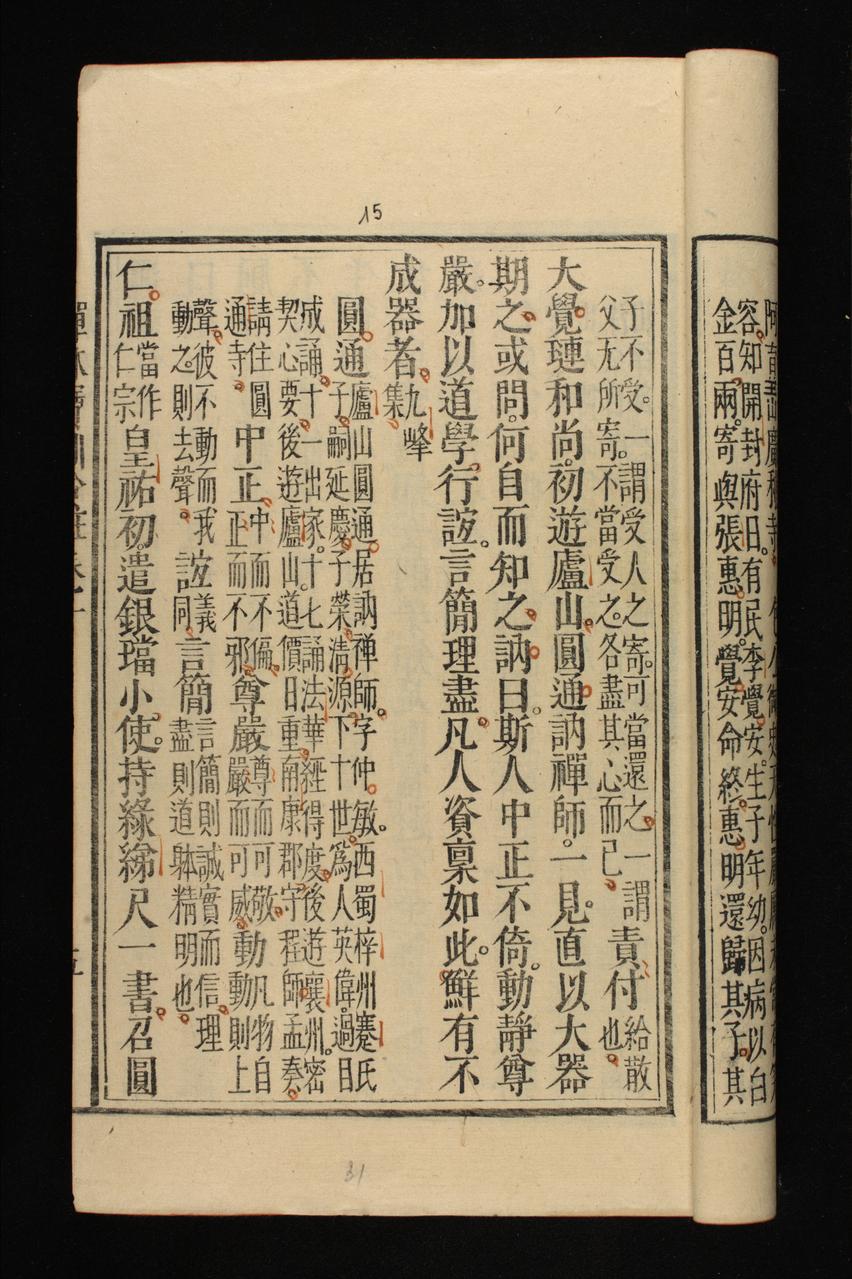 容知開封府日。有民李覺安。生子年幼。因病以白
金百兩。寄與張惠明。覺安命終。惠明還歸其子。其
15
子不受。一謂受人之寄。可當還之。一謂
父无所寄。不當受之。各盡其心而已。責付給散也。
大覺璉和尚。初遊廬山。圓通訥禪師。一見。直以大器
期之。或問。何自而知之。訥曰。斯人中正不倚。動靜尊
嚴。加以道學行誼。言簡理盡。凡人資稟如此。鮮有不
成器者。九峰集
圓通廬山圓通居訥禪師。字仲敏。西蜀梓州蹇氏
子嗣延慶子榮清源下十世。爲人英偉。過目
成誦。十一出家。十七誦法華經得度。後遊襄州。密
契心要。後遊廬山。道價日重。南康郡守程師孟奏。
請住圓通寺。中正中而不偏。正而不邪。尊嚴尊而可敬。嚴而可威。動凡物自動則上
聲。彼不動而我動之。則去聲。誼義同。言簡言簡則誠實而信。理盡則道躰精明也。
仁祖當作仁宗皇祐初。遣銀璫小使。持綠綈尺一書。召圓
31